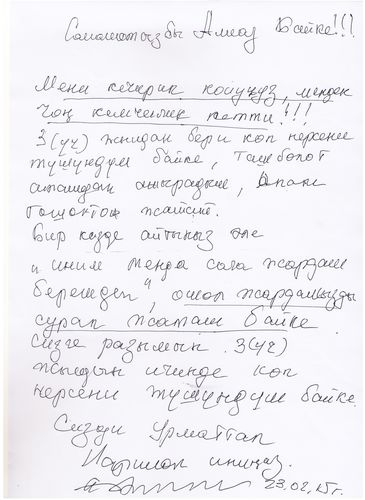 Саламатсызбы Алмаз Байке!!!
Мени кечирип коюңуз, менден
чоң кемчилик кетти!!!
3(үч) жылдан бери көп нерсени
түшүндүм байке, Ташболот
апам
жатат.
Бир кезде айтыңыз эле
"иним менда сага жардам
берешден", ошол жардамыңызды
сурап жатам байке
сизге разымын. 3(үч)
жылдын ичинде көп
нерсени түшүндүм байке.
Сизди Урматтап
инишиз.
23.02.15г.